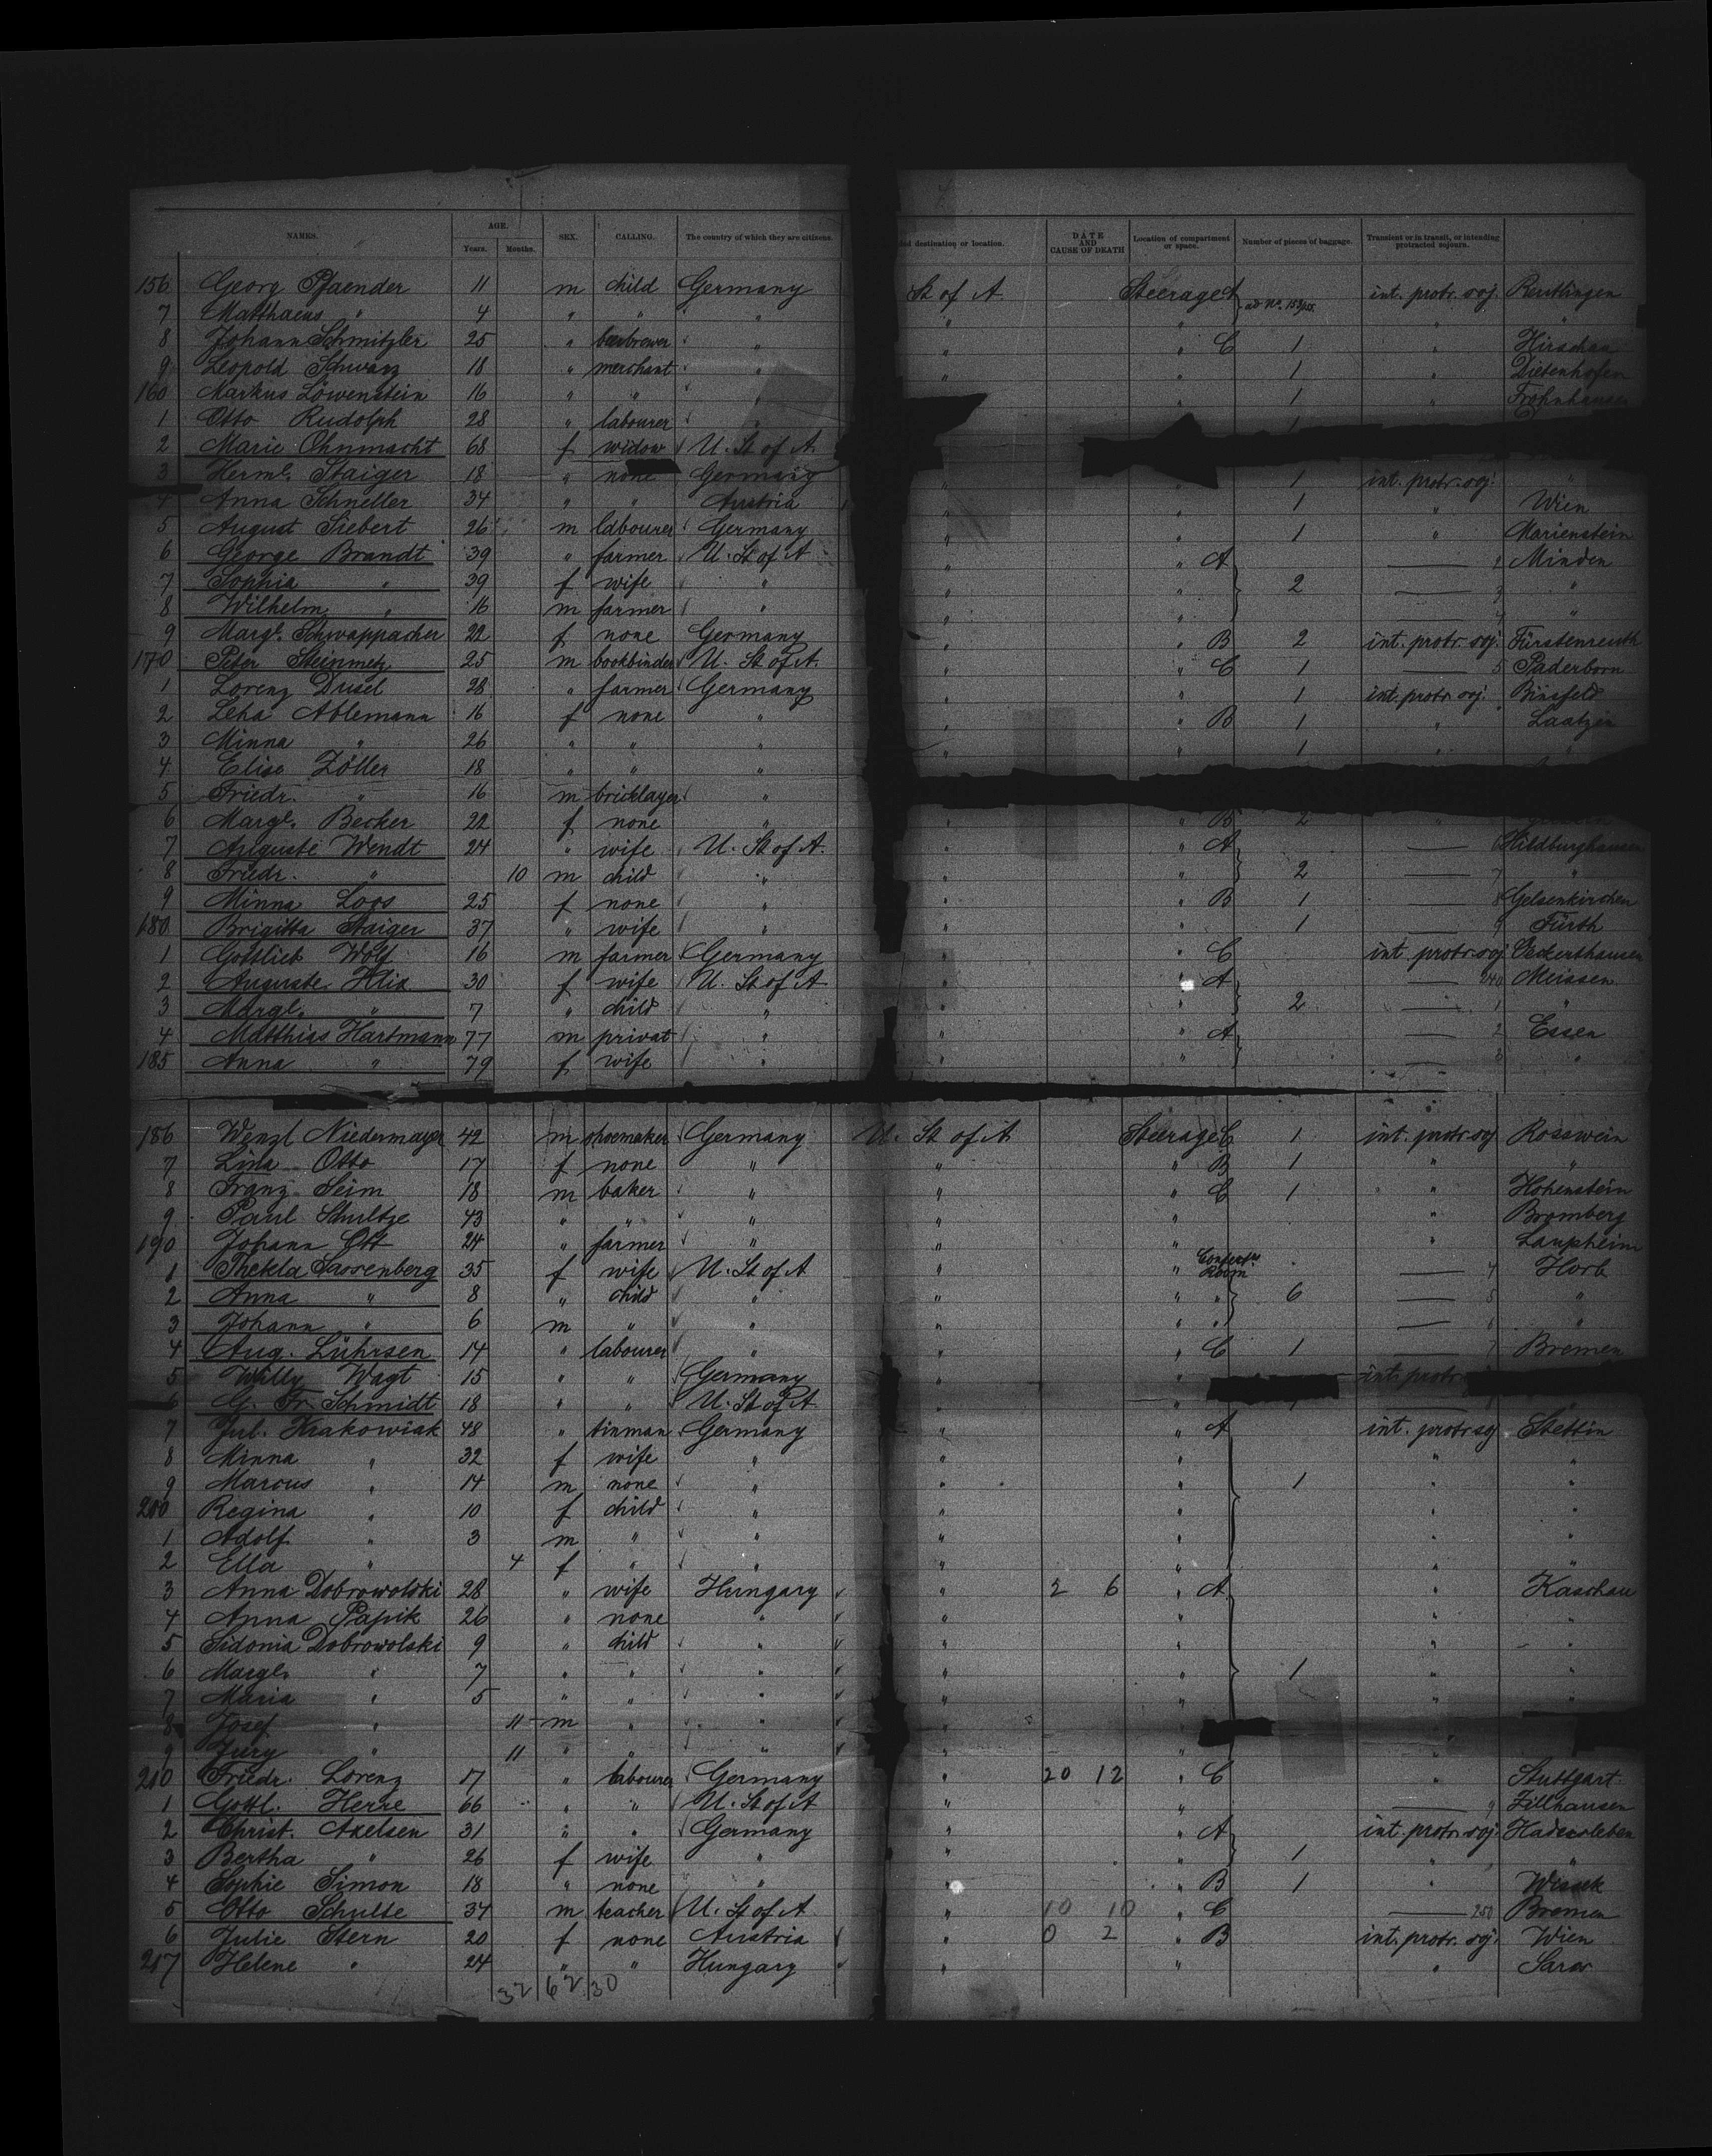 NAMES. AGE. Years. Months. SEX. CALLING. The country of which they are citizens. destination or location. DATE AND CAUSE OF DEATH Location of compartment or space. Number of pieces of baggage. Transient or in transit, or intending protracted sojourn.
156 Georg Pfaender 11 m child Germany St of A Steerage A ad No. int. protr. soj. Reutlingen
7 Matthaeus " 4 " " " " " " "
8 Johann Schmitzler 25 " beerbrewer " " " C 1 " Hirschau
9 Leopold Schwarz 18 " merchant " " " 1 " Dietenhofen
160 Markus Löwenstein 16 " " " " " 1 " Frohnhausen
1 Otto Rudolph 28 " labourer "
2 Marie Ohnmacht 68 f widow U. St of A
3 Herml. Staiger 18 " none Germany " " 1 int. protr. soj. "
4 Anna Schneller 34 " " Austria " " 1 " Wien
5 August Siebert 26 m labourer Germany " " 1 " Marienstein
6 George Brandt 39 " farmer U. St of A " " A — 2 Minden
7 Sophia " 39 f wife " " " 2 — 3 "
8 Wilhelm " 16 m farmer " " " — 4 "
9 Margt. Schwappacher 22 f none Germany " " B 2 int. protr. soj. Fürstenreuth
170 Peter Steinmetz 25 m bookbinder U. St of A " " C 1 — 5 Paderborn
1 Lorenz Drisel 28 " farmer Germany " " 1 int. protr. soj. Binsfeld
2 Leha Ablemann 16 f none " " " B 1 " Laatzen
3 Minna " 26 " " " " " 1 " "
4 Elise Zöller 18 " " "
5 Friedr. " 16 m bricklayer "
6 Margt. Becker 22 f none " " " B 2 "
7 Auguste Wendt 24 " wife U. St of A. " " A — 6 Hildburghausen
8 Friedr. " 10 m child " " 2 — 7 "
9 Minna Loos 25 f none " " " B 1 — 8 Gelsenkirchen
180 Brigitta Staiger 37 " wife " " " 1 — 9 Fürth
1 Gottlieb Wolf 16 m farmer Germany " " C int. protr. soj. Eckertshausen
2 Auguste Hlix 30 f wife U. St of A " A — 240 Meissen
3 Margt. " 7 " child " " " 2 — 1 "
4 Matthias Hartmann 77 m privat " " " A — 2 Essen
185 Anna " 79 f wife " " " — 3 "
186 Wenzl Niedermayer 42 m shoemaker Germany U. St of A Steerage C 1 int. protr. soj Rosswein
7 Lina Otto 17 f none " " " B 1 " "
8 Franz Seim 18 m baker " " " C 1 " Hohenstein
9 Paul Schultze 43 " " " " " " Bromberg
190 Johann Ott 24 " farmer " " " Laupheim
1 Thekla Sassenberg 35 f wife U. St of A " " Room — 4 Horb
2 Anna " 8 " child " " " " 6 — 5 "
3 Johann " 6 m " " " " " — 6 "
4 Aug. Lührsen 14 " labourer " " " C 1 — 7 Bremen
5 Willy Wagt 15 " " Germany " " int. protr
6 G. Fr. Schmidt 18 " " U. St of A " "
7 Jul. Krakowiak 48 " tinman Germany " " A int. protr soj Stettin
8 Minna " 32 f wife " " " " "
9 Marcus " 14 m none " " " 1 " "
200 Regina " 10 f child " " " " "
1 Adolf " 3 m " " " " " "
2 Ella " 4 f " " " " " "
3 Anna Dobrowolski 28 " wife Hungary " 2 6 " A " Kaschau
4 Anna Papik 26 " none " " " " "
5 Sidonia Dobrowolski 9 " child " " " " "
6 Margt. " 7 " " " " " 1 " "
7 Maria " 5 " " " " " " "
8 Josef " 11 m " " " "
9 Jury " 11 " " " " " "
210 Friedr. Lorenz 17 " labourer Germany " 20 12 " C " Stuttgart
1 Gottl. Herre 66 " " U. St of A " " — 9 Zillhausen
2 Christ. Axelsen 31 " " Germany " " A int. protr. soj. Hadersleben
3 Bertha " 26 f wife " " " 1 " "
4 Sophie Simon 18 " none " " " B 1 " Wissek
5 Otto Schulte 34 m teacher U. St of A " 10 10 " C — 250 Bremen
6 Julie Stern 20 f none Austria " 0 2 " B int. protr. soj. Wien
217 Helene " 24 " " Hungary " " " Sarar
32 62 30